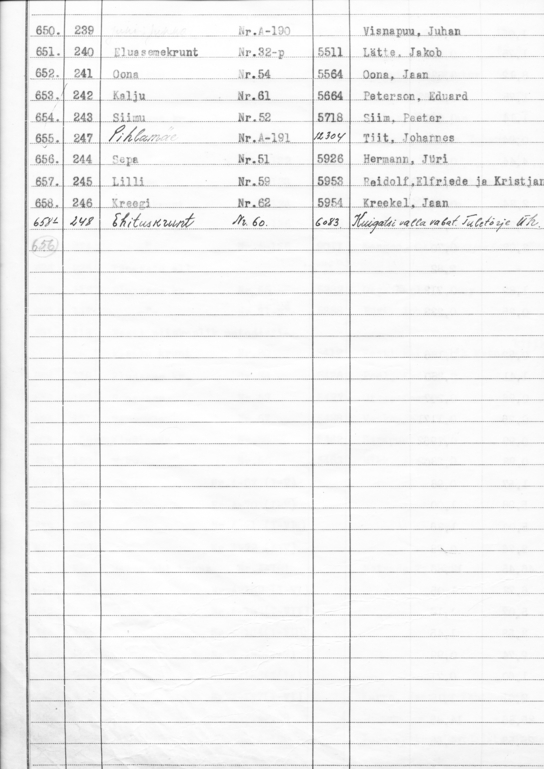 650. 239 Nr.A-190 Visnapuu, Juhan
651. 240 Elussemekrunt Nr.32-p 5511 Lätte, Jakob
652. 241 Oona Nr.54 5564 Oona, Jaan
653. 242 Kalju Nr.61 5664 Peterson, Eduard
654. 243 Siimu Nr.52 5718 Siim, Peeter
655. 247 Pihlamäe Nr.A-191 12304 Tiit, Johannes
656. 244 Sepa Nr.51 5926 Hermann, Jüri
657. 245 Lilli Nr.59 5953 Reidolf,Elfriede ja Kristjan
658. 246 Kreegi Nr.62 5954 Kreekel, Jaan
658a 248 Ehituskrunt Nr. 60. 6083 Kuigatsi valla vabat. Tuletõrje Üh.
656